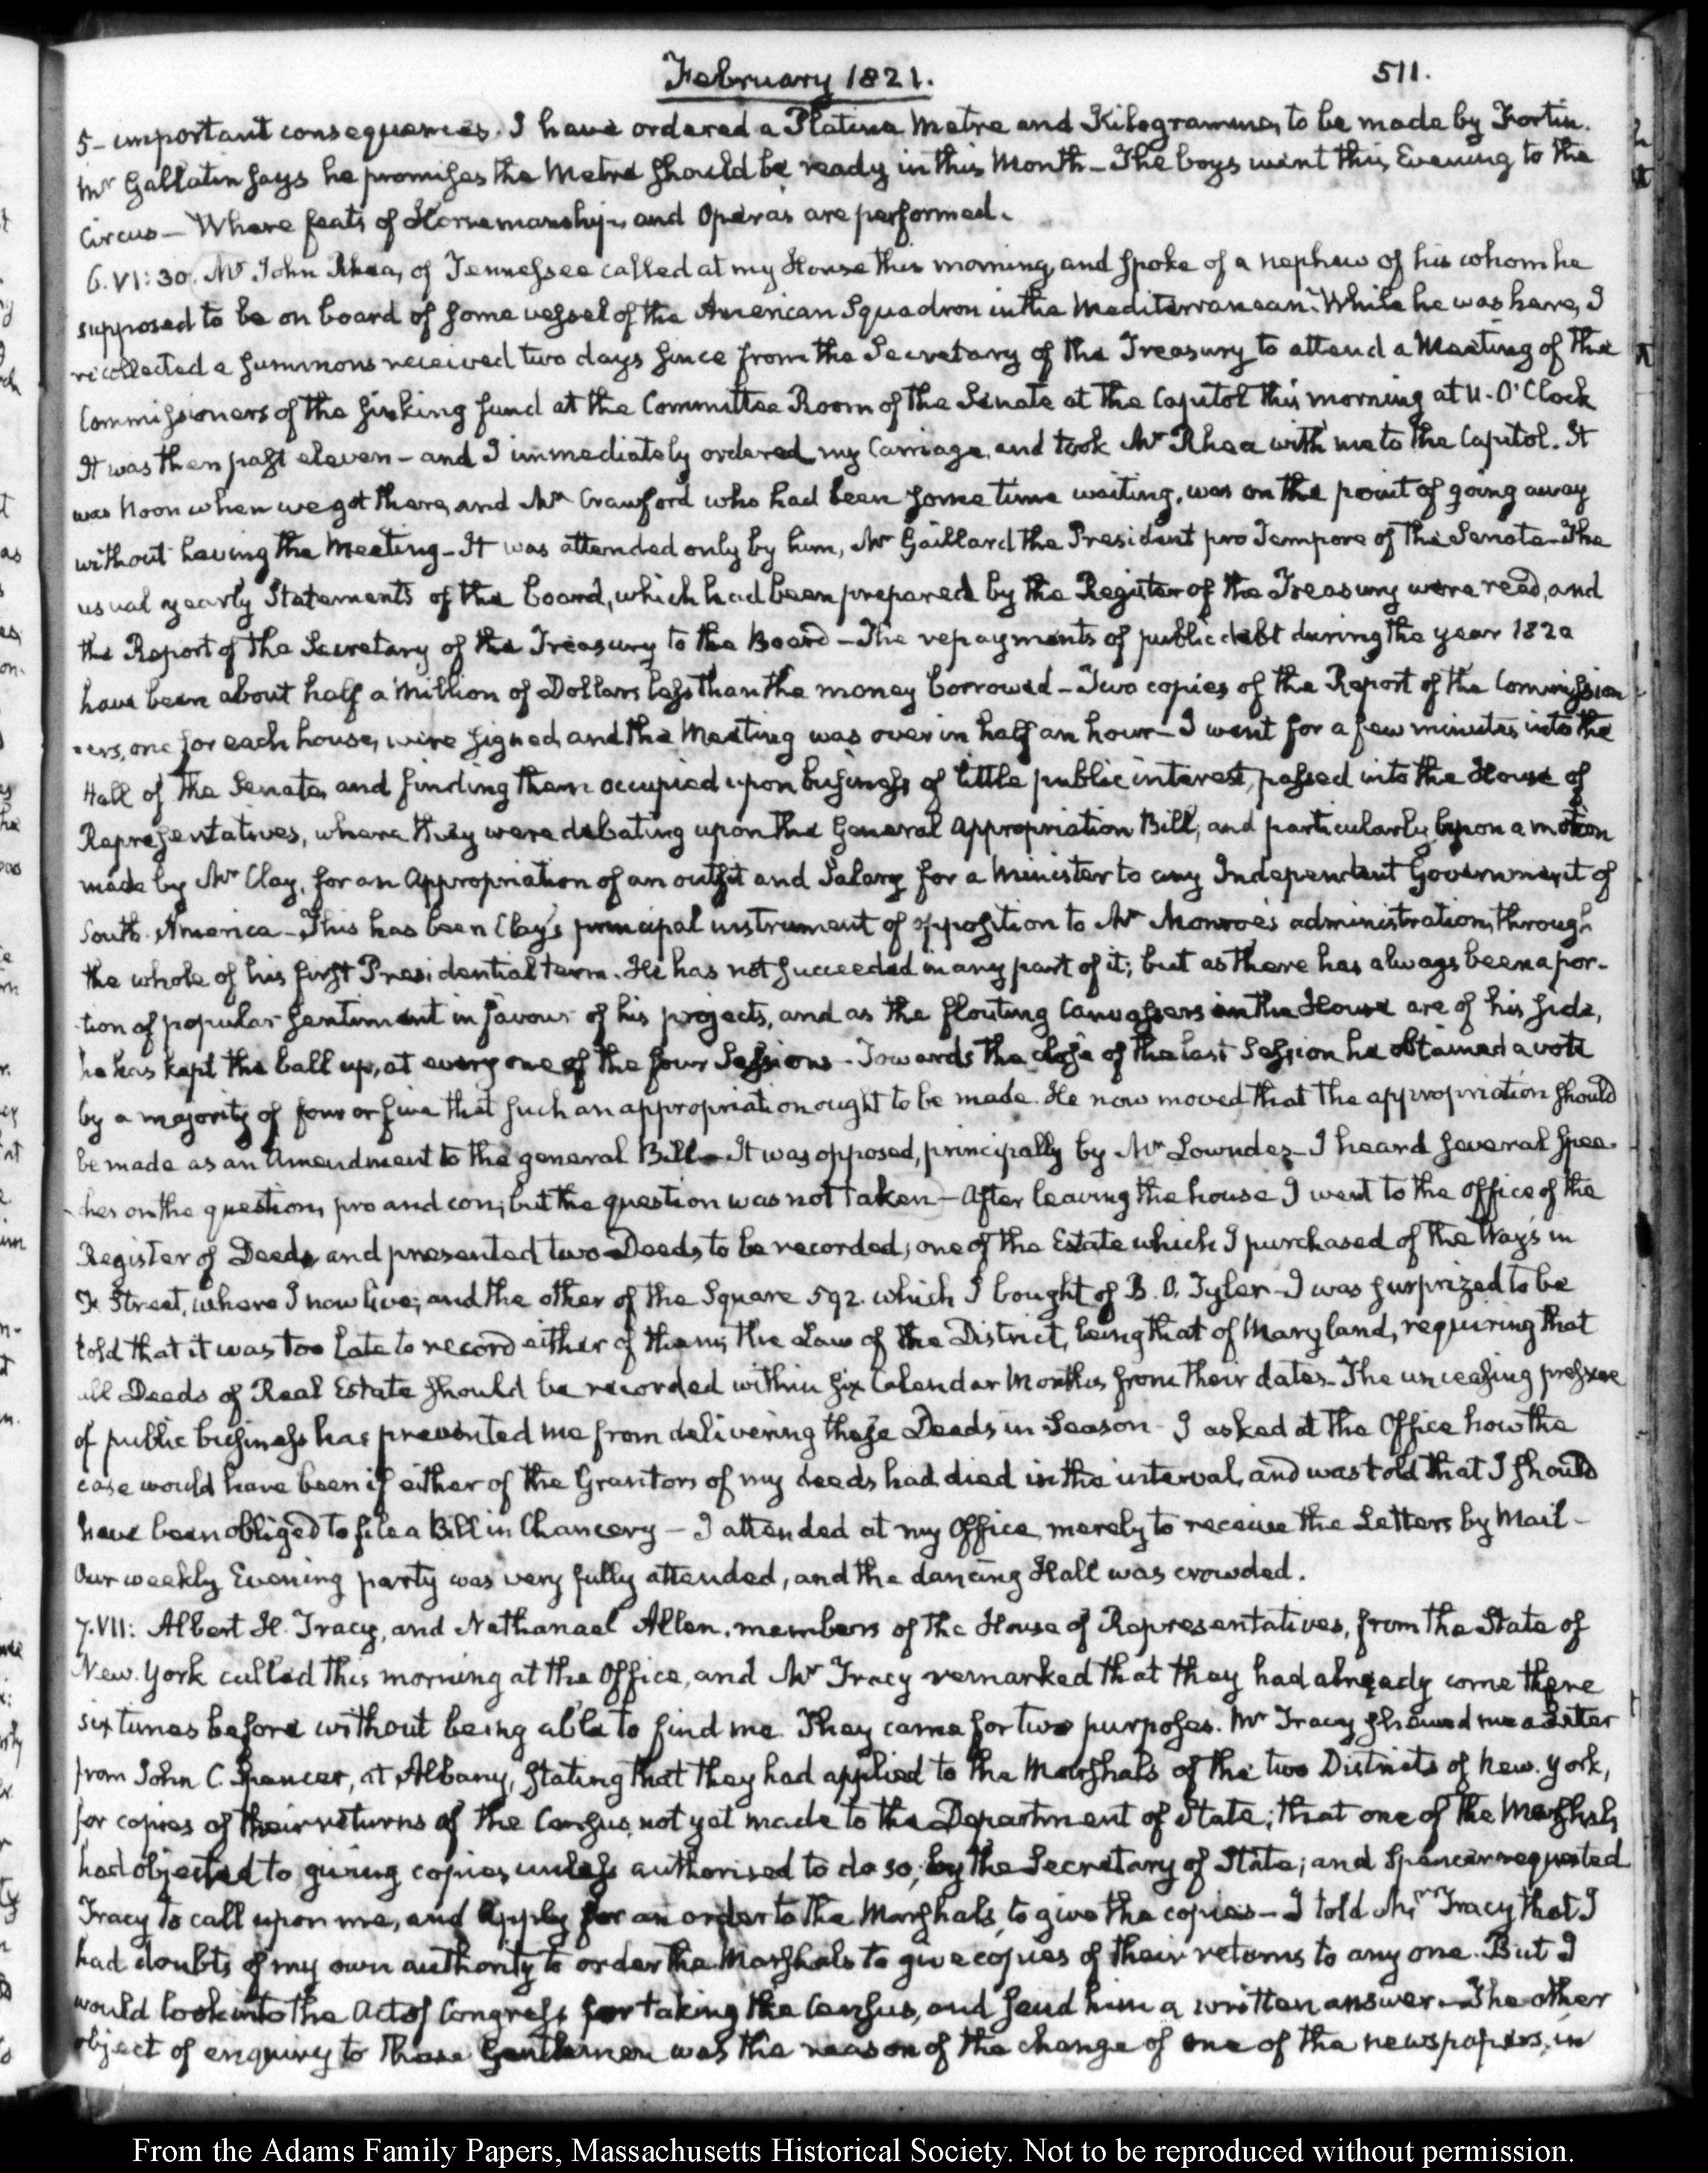 February 1821.
511.
5- important consequences. I have ordered a Platina Metre and Kilogramme, to be made by Fortin.
Mr Gallatin says he promises the Metre should be ready in this Month - The boys went this Evening to the
Circus - Where feats of Horsemanship, and Operas are performed.
6. VI:30. Mr John Rhea, of Tennessee called at my House this morning, and spoke of a nephew of his whom he
supposed to be on board of some vessel of the American Squadron in the Mediterranean. While he was here, I
recollected a summons received two days since from the Secretary of the Treasury to attend a Meeting of the
Commissioners of the sinking fund at the Committee Room of the Senate at the Capitol this morning at 11. O'Clock
It was then past eleven - and I immediately ordered my Carriage, and took Mr Rhea with me to the Capitol. It
was Noon when we got there, and Mr Crawford who had been some time waiting, was on the point of going away
without having the Meeting - It was attended only by him, Mr Gaillard the President pro Tempore of the Senate - The
usual yearly Statements of the board, which had been prepared by the Register of the Treasury were read, and
the Report of the Secretary of the Treasury to the Board - The repayments of public debt during the year 1820
have been about half a Million of Dollars less than the money borrowed - Two copies of the Report of the Commission
ers, one for each house, were signed, and the Meeting was over in half an hour - I went for a few minutes into the
Hall of the Senate, and finding them occupied upon business of little public interest, passed into the House of
Representatives, where they were debating upon the General Appropriation Bill, and particularly upon a motion
made by Mr Clay, for an Appropriation of an outfit and Salary for a Minister to any Independent Government of
South America - This has been Clay's principal instrument of opposition to Mr Monroe's administration, through
the whole of his first Presidential term. He has not succeeded in any part of it; but as there has always been a por-
tion of popular sentiment in favour of his projects, and as the flouting Canvassers in the House are of his side,
he has kept the ball up, at every one of the four Sessions - Towards the close of the last Session he obtained a vote
by a majority of four or five that such an appropriation ought to be made. He now moved that the appropriation should
be made as an Amendment to the general Bill - It was opposed, principally by Mr Lowndes - I heard several spee-
ches on the question, pro and con; but the question was not taken - After leaving the house I went to the office of the
Register of Deeds, and presented two Deeds to be recorded; one of the Estate which I purchased of the Ways in
F. Street, where I now live; and the other of the Square 592. which I bought of B. O. Tyler - I was surprized to be
told that it was too late to record either of them; the Law of the District, being that of Maryland, requiring that
all Deeds of Real Estate should be recorded within six Calendar Months from their dates - The unceasing pressure
of public business has prevented me from delivering these Deeds in Season - I asked at the Office how the
case would have been if either of the Grantors of my deeds had died in the interval, and was told that I should
have been obliged to file a Bill in Chancery - I attended at my Office, merely to receive the Letters by Mail -
Our weekly Evening party was very fully attended, and the dancing Hall was crowded.
7. VII: Albert H. Tracy, and Nathanael Allen, members of the House of Representatives, from the State of
New. York called this morning at the Office, and Mr Tracy remarked that they had already come there
six times before without being able to find me. They came for two purposes. Mr Tracy shewed me a Letter
from John C. Spencer, at Albany, stating that they had applied to the Marshals of the two Districts of New. York,
for copies of their returns of the Census, not yet made to the Department of State; that one of the Marshals
had objected to giving copies, unless authorised to do so, by the Secretary of State; and Spencer requested
Tracy to call upon me, and apply for an order to the Marshals, to give the copies - I told Mr Tracy that I
had doubts of my own authority to order the Marshals to give copies of their returns to any one. But I
would look into the Act of Congress for taking the Census, and send him a written answer - The other
object of enquiry to these Gentlemen was the reason of the change of one of the newspapers, in
From the Adams Family Papers, Massachusetts Historical Society. Not to be reproduced without permission.